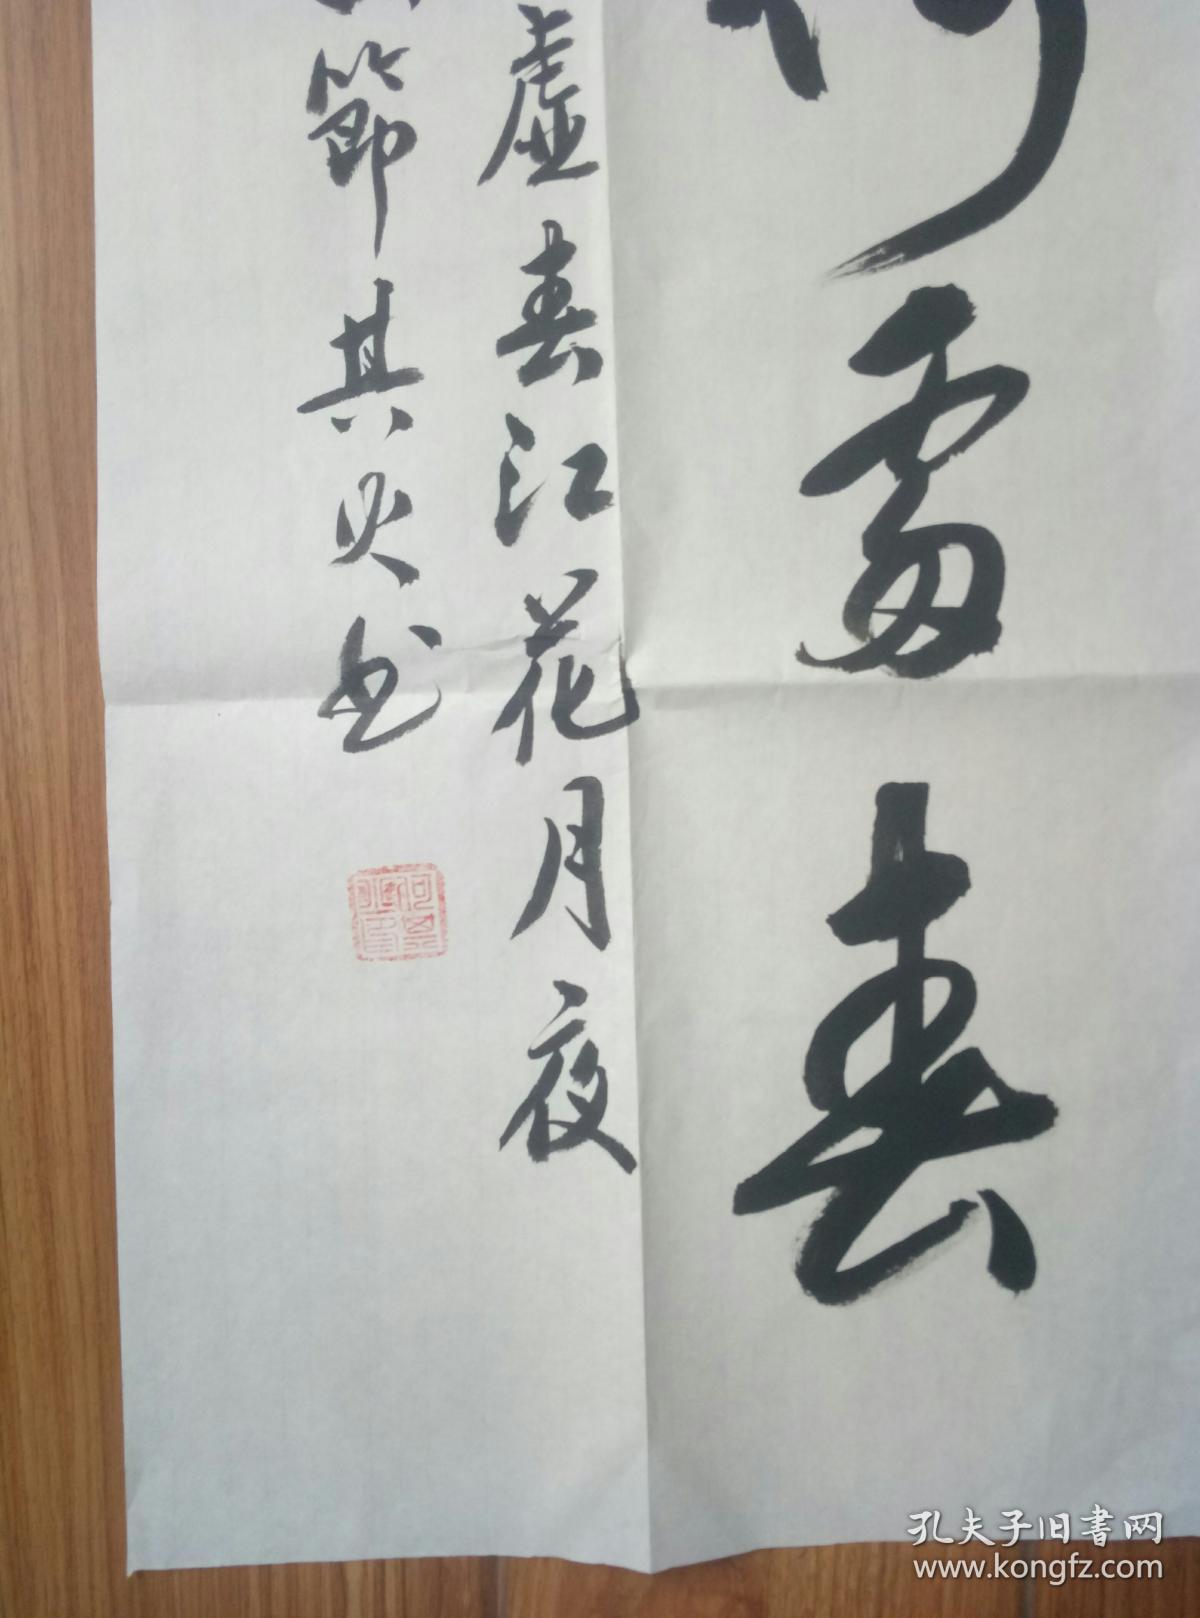 處春
虛春江花月夜
節其书
孔夫子旧书网
www.kongfz.com